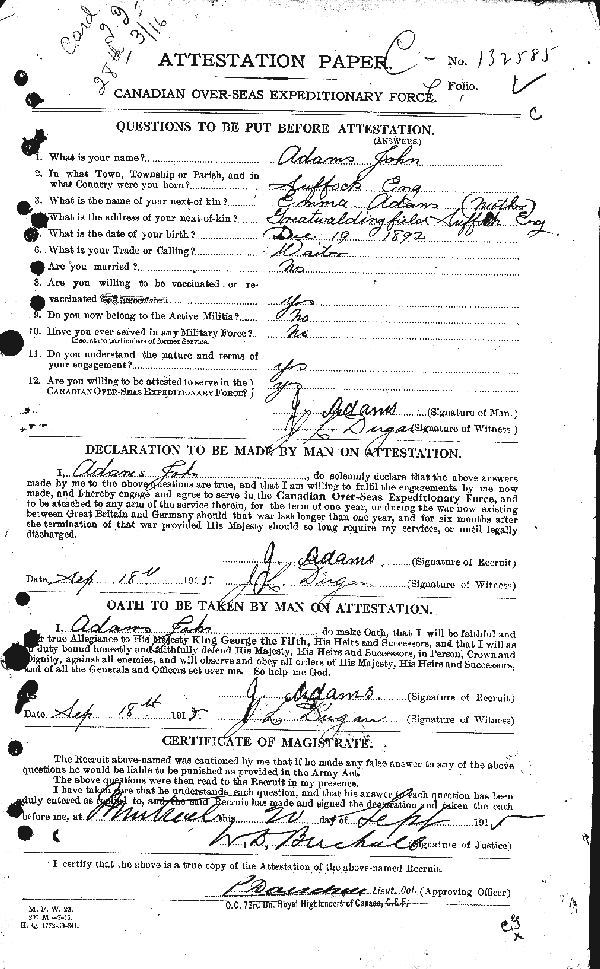 Card
ATTESTATION PAPER. No. 132585
Folio.
CANADIAN OVER-SEAS EXPEDITIONARY FORCE.
C
QUESTIONS TO BE PUT BEFORE ATTESTATION.
(ANSWERS)
1. What is your name? Adams John
2. In what Town, Township or Parish, and in
what Country were you born? Suffock Eng
3. What is the name of your next-of-kin? Emma Adams (Mother)
What is the address of your next-of-kin? Greatwaldingfield Suffolk Eng
What is the date of your birth? Dec 19 1892
6. What is your Trade or Calling? Waiter
Are you married? No
8. Are you willing to be vaccinated or re-
vaccinated yes
9. Do you now belong to the Active Militia? No
10. Have you ever served in any Military Force? No
If so, state particulars of former Service.
11. Do you understand the nature and terms of
your engagement? yes
12. Are you willing to be attested to serve in the
CANADIAN OVER-SEAS EXPEDITIONARY FORCE? yes
J. Adams (Signature of Man.)
J L Dugan (Signature of Witness)
DECLARATION TO BE MADE BY MAN ON ATTESTATION.
I, Adams John, do solemnly declare that the above answers
made by me to the above questions are true, and that I am willing to fulfil the engagements by me now
made, and I hereby engage and agree to serve in the Canadian Over-Seas Expeditionary Force, and
to be attached to any arm of the service therein, for the term of one year, or during the war now existing
between Great Britain and Germany should that war last longer than one year, and for six months after
the termination of that war provided His Majesty should so long require my services, or until legally
discharged.
J. Adams (Signature of Recruit)
Date Sep 18th 1915 J L Dugan (Signature of Witness)
OATH TO BE TAKEN BY MAN ON ATTESTATION.
I, Adams John, do make Oath, that I will be faithful and
bear true Allegiance to His Majesty King George the Fifth, His Heirs and Successors, and that I will as
in duty bound honestly and faithfully defend His Majesty, His Heirs and Successors, in Person, Crown and
Dignity, against all enemies, and will observe and obey all orders of His Majesty, His Heirs and Successors,
and of all the Generals and Officers set over me. So help me God.
J. Adams (Signature of Recruit)
Date Sep 18th 1915 J L Dugan (Signature of Witness)
CERTIFICATE OF MAGISTRATE.
The Recruit above-named was cautioned by me that if he made any false answer to any of the above
questions he would be liable to be punished as provided in the Army Act.
The above questions were then read to the Recruit in my presence.
I have taken care that he understands each question, and that his answer to each question has been
duly entered as replied to, and the said Recruit has made and signed the declaration and taken the oath
before me, at Montreal this 20 day of Sept 1915
(Signature of Justice)
I certify that the above is a true copy of the Attestation of the above-named Recruit.
Lieut. Col. (Approving Officer)
O.C. 73rd Bn. Royal Highlanders of Canada, C.E.F.
M. F. W. 23.